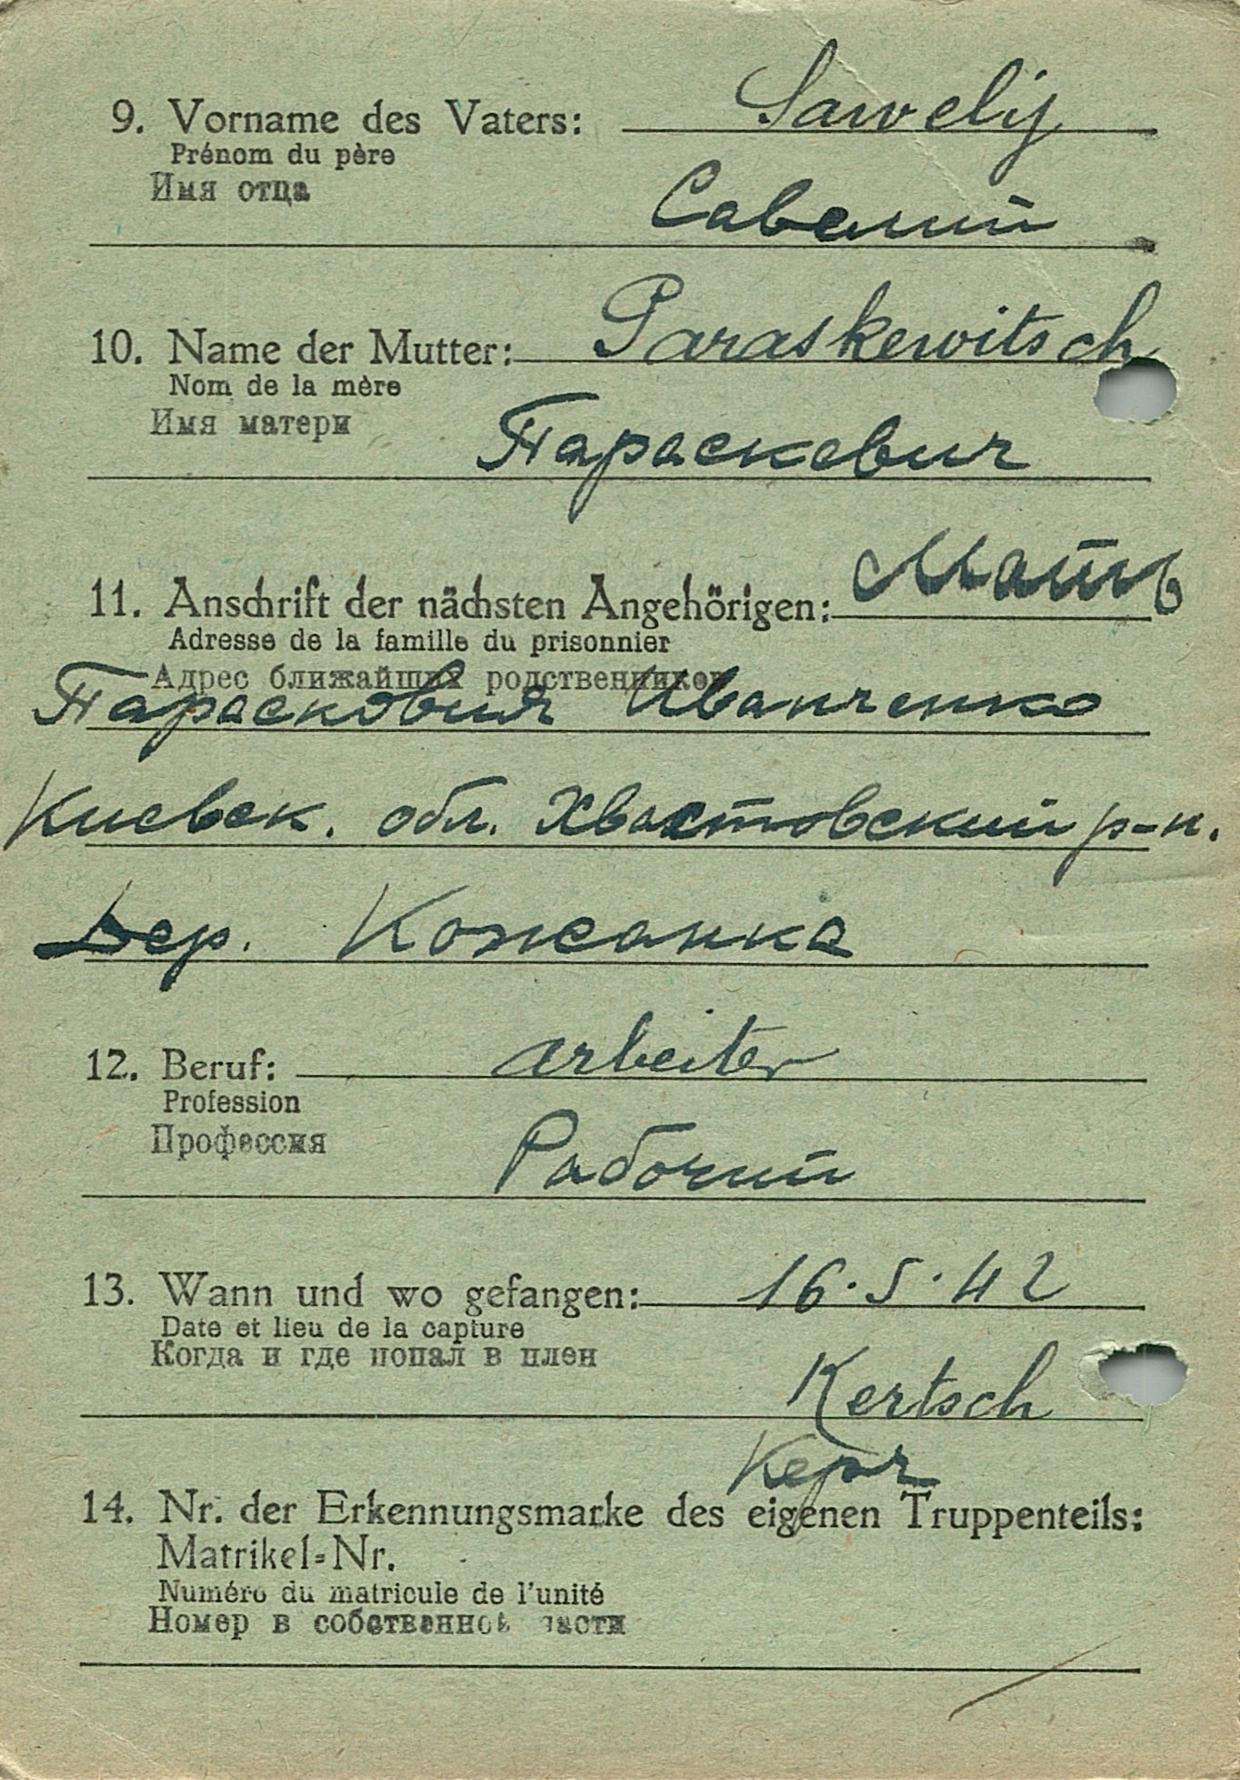 9. Vorname des Vaters: Sawelij
Prénom du père
Имя отца
Савелий
10. Name der Mutter: Paraskewitsch
Nom de la mère
Имя матери
Параскевич
11. Anschrift der nächsten Angehörigen: Мать
Adresse de la famille du prisonnier
Адрес ближайших родственников
Парасковия Иванченко
Киевск. обл. Хвастовский р-н.
Дер. Кожанка
12. Beruf: arbeiter
Profession
Профессия
Рабочий
13. Wann und wo gefangen: 16.5.42
Date et lieu de la capture
Когда и где попал в плен
Kertsch
Керч
14. Nr. der Erkennungsmarke des eigenen Truppenteils:
Matrikel=Nr.
Numéro du matricule de l'unité
Номер в собственной части